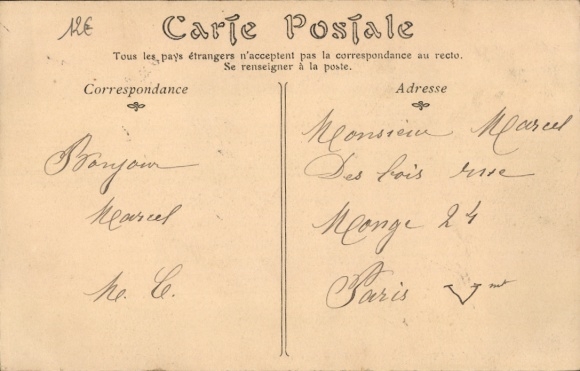 12€
Carte Postale
Tous les pays étrangers n'acceptent pas la correspondance au recto.
Se renseigner à la poste.
Correspondance
Bonjour
Marcel
M. C.
Adresse
Monsieur Marcel
Des bois rue
Monge 24
Paris V mt